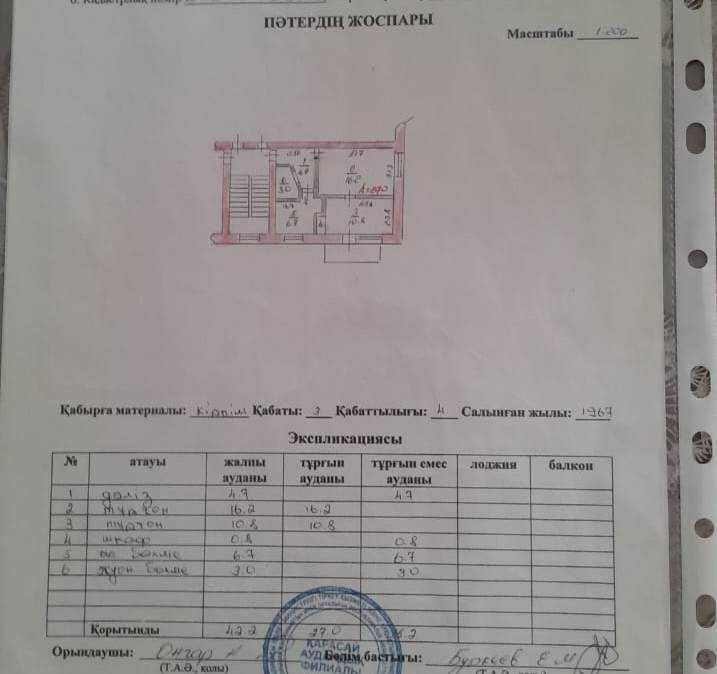 6. Кадастрлық нөмір
ПӘТЕРДІҢ ЖОСПАРЫ
Масштабы 1:200
1
4.7
2
16.2
6
3.0
5
6.7
3
10.8
4
Қабырға материалы: кірпіш Қабаты: 3 Қабаттылығы: 4 Салынған жылы: 1967
Экспликациясы
№ атауы жалпы ауданы тұрғын ауданы тұрғын емес ауданы лоджия балкон
1 дәліз 4.7 4.7
2 тұрғын 16.2 16.2
3 тұрғын 10.8 10.8
4 шкаф 0.8 0.8
5 ас бөлме 6.7 6.7
6 жуын бөлме 3.0 3.0
Қорытынды 42.2 27.0 15.2
Орындаушы: Онгар А Бөлім бастығы: Буркеев Е М
(Т.А.Ә., қолы)
ҚАРАСАЙ
ФИЛИАЛЫ